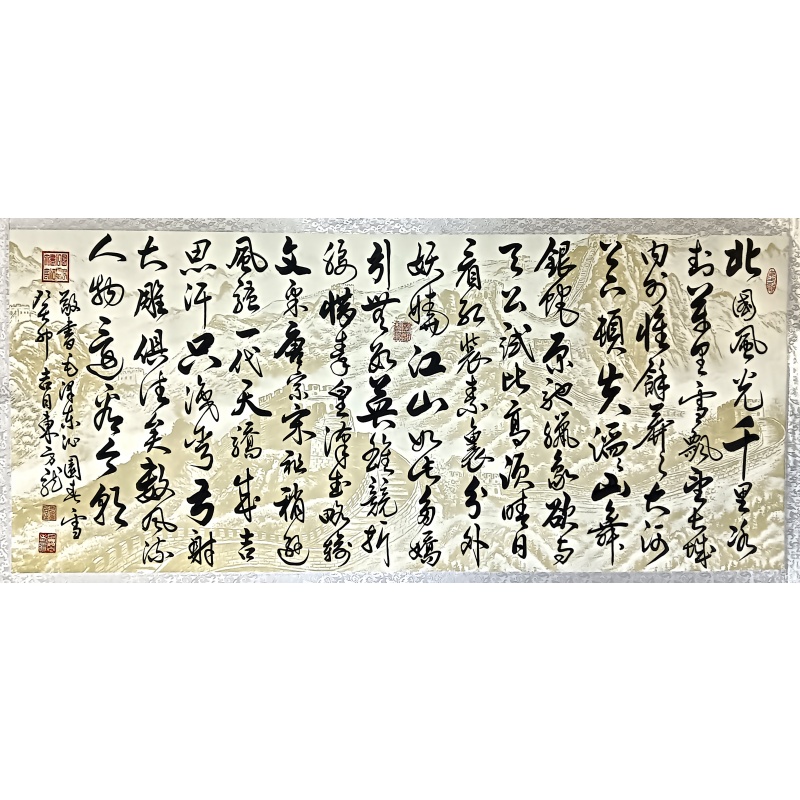 北國風光千里冰
封萬里雪飄望長城
内外惟餘莽莽大河
上下頓失滔滔山舞
銀蛇原馳蠟象欲與
天公試比高須晴日
看紅裝素裹分外
妖嬈江山如此多嬌
引無數英雄競折
腰惜秦皇漢武略輸
文采唐宗宋祖稍遜
風騷一代天驕成吉
思汗只識彎弓射
大雕俱往矣數風流
人物還看今朝
敬書毛泽东沁園春雪
癸卯吉日東方龍